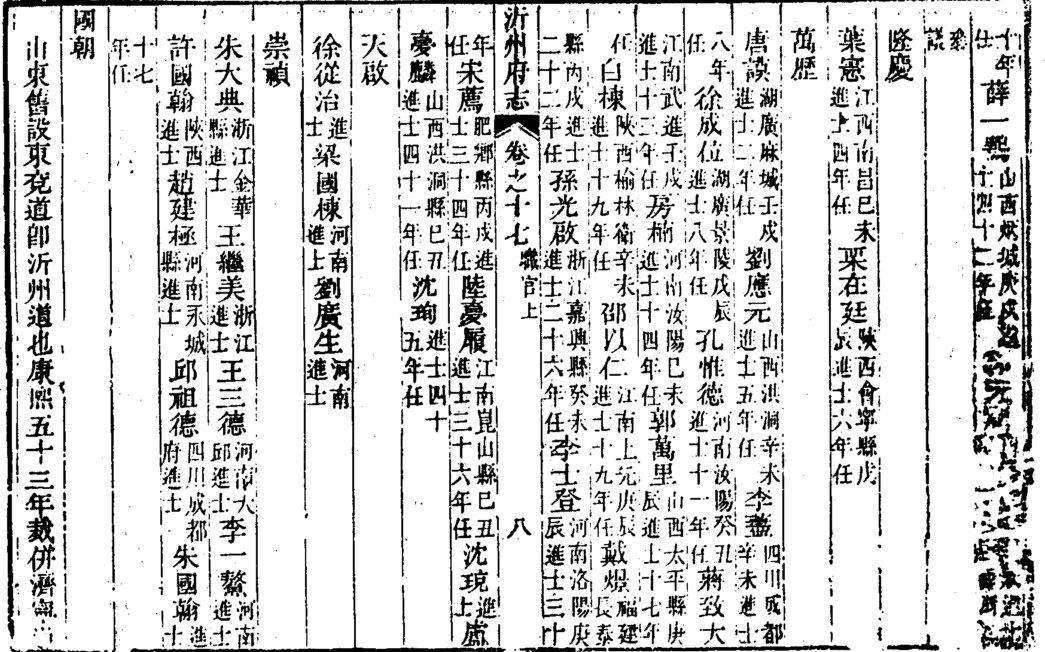 薛一鶚山西
隆慶
葉憲江西南昌己未進士四年任栗在廷陝西會寧縣戊辰進士六年任
萬歷
唐湖廣麻城壬戌進士二年任劉應元山西洪洞辛未進士五年任李四川成都辛未進士
八年任徐成位湖廣景陵戊辰進士八年任孔惟德河南汝陽癸丑進士十一年任蔣致大
江南武進壬戌進士十二年任房楠河南汝陽己未進士十四年任郭萬里山西太平縣庚辰進士十七年
任白棟陝西榆林衛辛未進士十九年任邵以仁江南上元庚辰進士十九年任戴燝福建長泰
縣丙戌進士二十二年任孫光啟浙江嘉興縣癸未進士二十六年任李士登河南洛陽庚辰進士三十
沂州府志 卷之十七 職官上 八
年任宋薦肥鄉縣丙戌進士三十四年任陸夢履江南崑山縣己丑進士三十六年任沈琓進士盧
夢麟山西洪洞縣己丑進士四十一年任沈珣進士四十五年任
天啟
徐從治進士梁國棟河南進士劉廣生河南進士
崇禎
朱大典浙江金華縣進士王繼美浙江進士王三德河南大邱進士李一鰲河南進士
許國翰陝西進士趙建極河南永城縣進士邱祖德四川成都府進士朱國翰進士
十七年任
國朝
山東舊設東兗道卽沂州道也康熙五十三年裁併濟寧